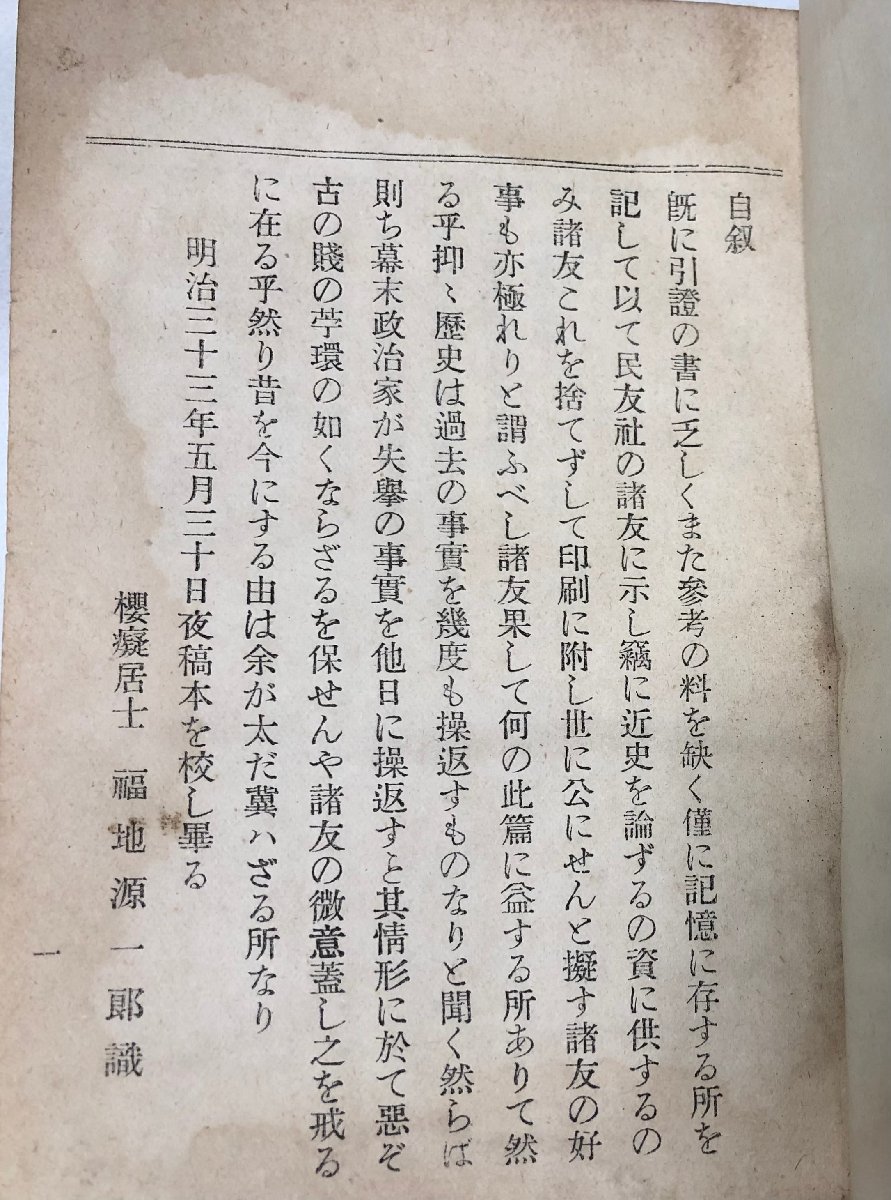 自叙
既に引證の書に乏しくまた參考の料を缺く僅に記憶に存する所を
記して以て民友社の諸友に示し竊に近史を論ずるの資に供するの
み諸友これを捨てずして印刷に附し世に公にせんと擬す諸友の好
事も亦極れりと謂ふべし諸友果して何の此篇に益する所ありて然
る乎抑〻歷史は過去の事實を幾度も操返すものなりと聞く然らば
則ち幕末政治家が失擧の事實を他日に操返すと其情形に於て惡ぞ
古の賤の苧環の如くならざるを保せんや諸友の微意蓋し之を戒る
に在る乎然り昔を今にする由は余が太だ冀ハざる所なり
明治三十三年五月三十日夜稿本を校し畢る
櫻癡居士 福地源一郎識
一